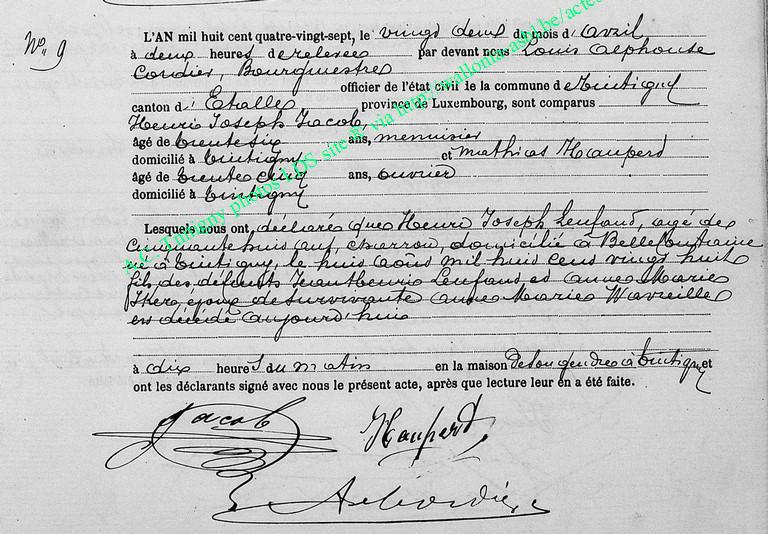 N° 9
L'AN mil huit cent quatre-vingt-sept, le vingt deux du mois d'avril
à deux heures de relevée par devant nous Louis Alphonse
Cordier, Bourgmestre
officier de l'état civil de la commune de Tintigny
canton d'Etalle province de Luxembourg, sont comparus
Henri Joseph Jacob,
âgé de trente six ans, menuisier
domicilié à Tintigny et Mathias Haupert
âgé de trente cinq ans, ouvrier
domicilié à Tintigny
Lesquels nous ont déclaré que Henri Joseph Lenfant, agé de
Cinquante huit ans, charron, domicilié à Bellefontaine
né à Tintigny, le huit août mil huit cent vingt huit
fils des défunts Jean Henri Lenfant et Anne Marie
époux de survivante Anne Marie Wavreille
est décédé aujourd'hui
à dix heures du matin en la maison de son gendre à Tintigny et
ont les déclarants signé avec nous le présent acte, après que lecture leur en a été faite.
Jacob
Haupert
A Cordier
A.C. Tintigny photos LDS site & via http://wallonia.asbl.be/actes